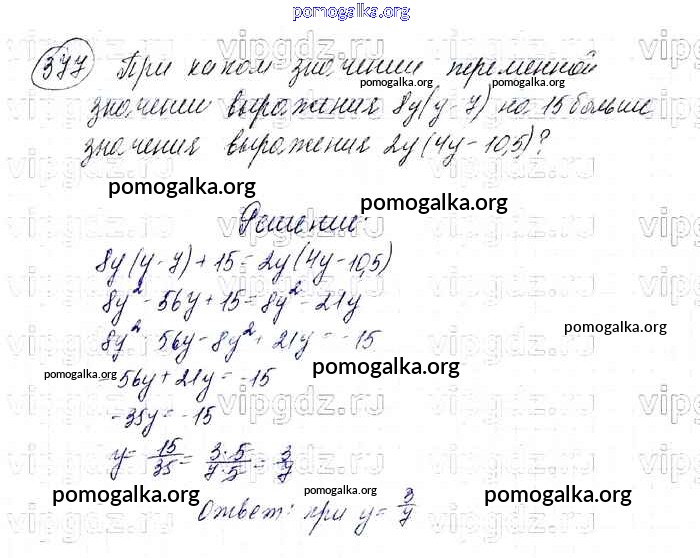 pomogalka.org
377 При каком значении переменной
pomogalka.org pomogalka.org
значении выражения 8y(y-7) на 15 больше
значения выражения 2y(4y-10,5)?
pomogalka.org pomogalka.org
Решение:
8y(y-7)+15=2y(4y-10,5)
8y²-56y+15=8y²-21y
8y²-56y-8y²+21y=-15
pomogalka.org
pomogalka.org pomogalka.org
-56y+21y=-15
-35y=-15
y=15/35=3·5/7·5=3/7
pomogalka.org pomogalka.org pomogalka.org
Ответ: при y=3/7
vipgdz.ru